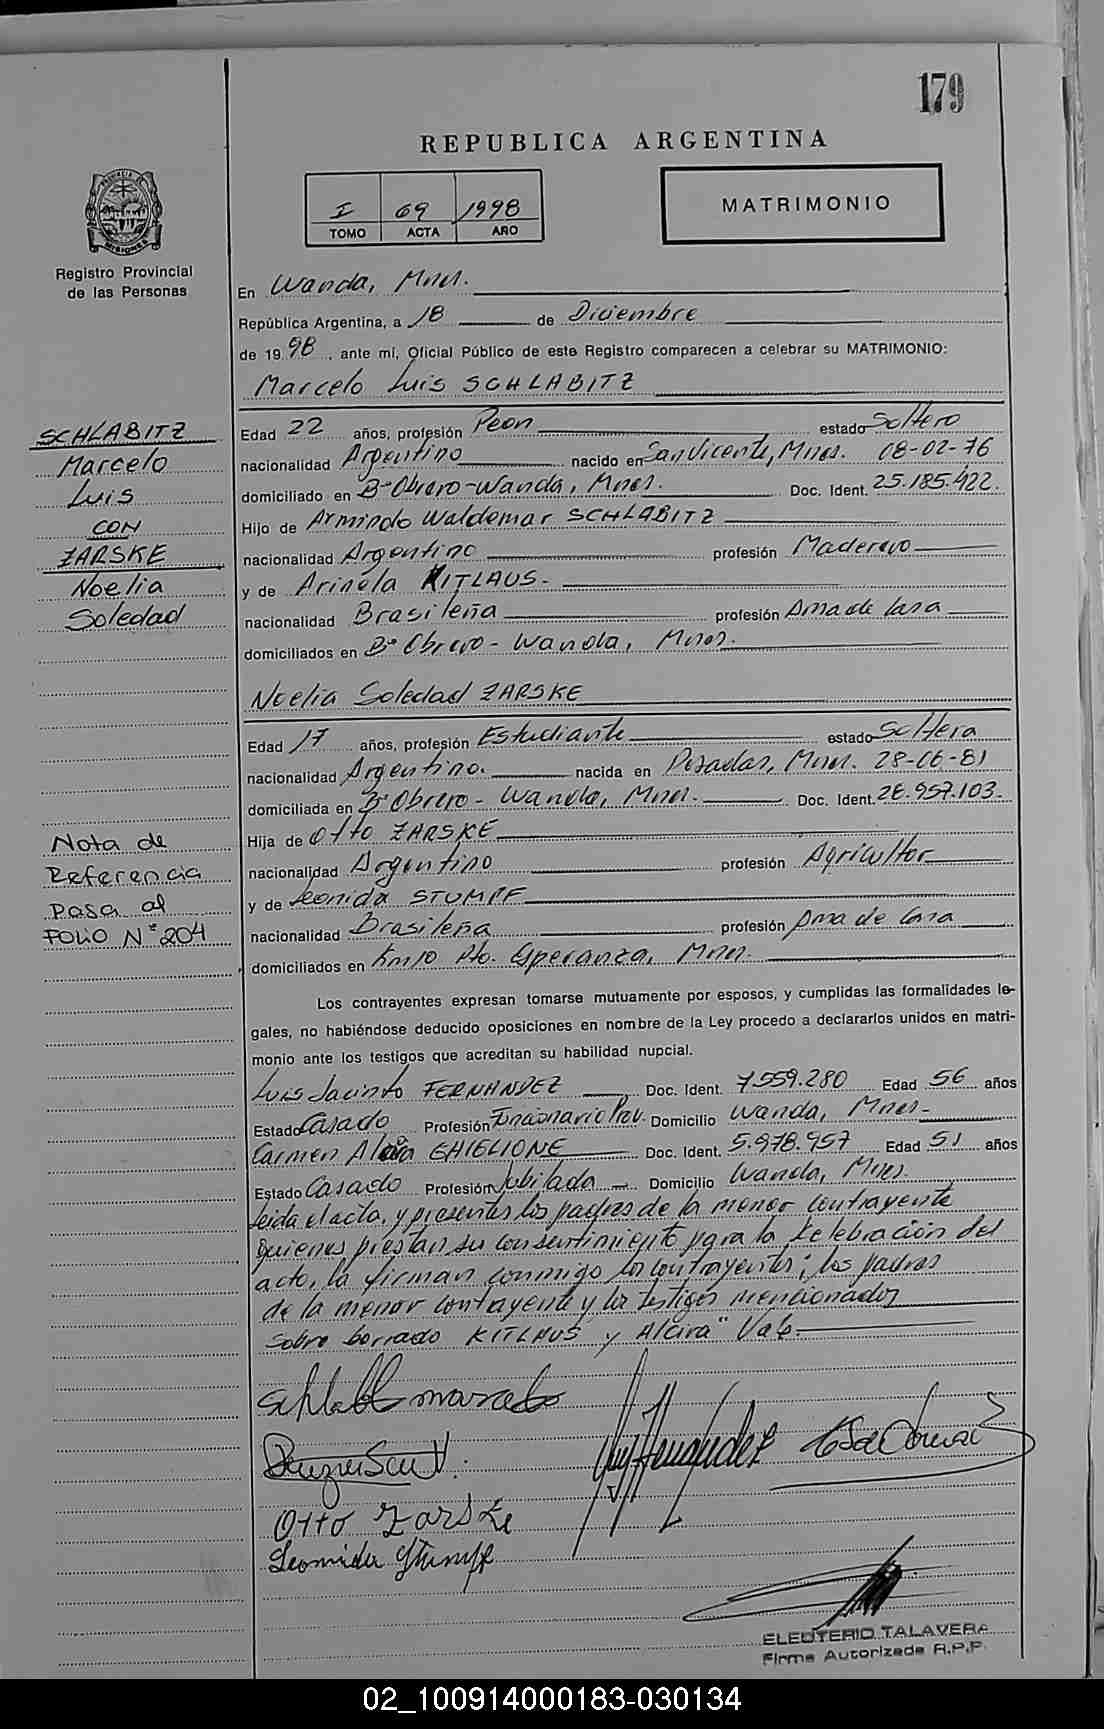 179
REPUBLICA ARGENTINA
I 69 1998
TOMO ACTA AÑO
MATRIMONIO
PROVINCIA DE
MISIONES
Registro Provincial
de las Personas
En Wanda, Mnes.
República Argentina, a 18 de Diciembre
de 1998, ante mí, Oficial Público de este Registro comparecen a celebrar su MATRIMONIO:
Marcelo Luis SCHLABITZ
SCHLABITZ
Marcelo
Luis
CON
ZARSKE
Noelia
Soledad
Edad 22 años, profesión Peon estado Soltero
nacionalidad Argentino nacido en San Vicente, Mnes. 08-02-76
domiciliado en Bº Obrero-Wanda, Mnes. Doc. Ident. 25.185.422.
Hijo de Armindo Waldemar SCHLABITZ
nacionalidad Argentino profesión Maderero
y de Arinela KITLAUS.
nacionalidad Brasileña profesión Ama de Casa
domiciliados en Bº Obrero-Wanda, Mnes.
Noelia Soledad ZARSKE
Edad 17 años, profesión Estudiante estado Soltera
nacionalidad Argentino. nacida en Posadas, Mnes. 28-06-81
domiciliada en Bº Obrero-Wanda, Mnes. Doc. Ident. 28.957.103.
Hija de Otto ZARSKE
nacionalidad Argentino profesión Agricultor
y de Leonida STUMPF
nacionalidad Brasileña profesión Ama de Casa
domiciliados en Km 10 Pto. Esperanza, Mnes.
Nota de
Referencia
pasa al
FOLIO Nº 204
Los contrayentes expresan tomarse mutuamente por esposos, y cumplidas las formalidades le-
gales, no habiéndose deducido oposiciones en nombre de la Ley procedo a declararlos unidos en matri-
monio ante los testigos que acreditan su habilidad nupcial.
Luis Jacinto FERNANDEZ Doc. Ident. 7.559.280 Edad 56 años
Estado Casado Profesión Funcionario Prov. Domicilio Wanda, Mnes-
Carmen GHIGLIONE Doc. Ident. 5.978.957 Edad 51 años
Estado Casado Profesión Jubilada Domicilio Wanda, Mnes.
Leida el acta, y presentes los padres de la menor contrayente
quienes prestan su consentimiento para la celebración del
acto, la firman conmigo los contrayentes; los padres
de la menor contrayente y los testigos mencionados
Sobre borrado KITLAUS y Alcira" Vale.
Otto Zarske
Leomida Stumpf
ELEUTERIO TALAVERA
Firma Autorizada R.P.P.
02_100914000183-030134